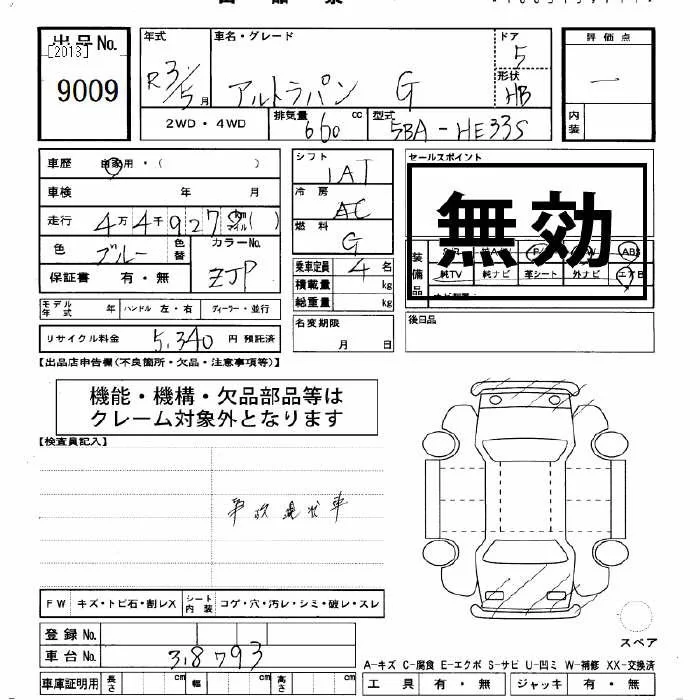 出品No.
[2013]
9009
年式
R3/5月
車名・グレード
アルトラパン G
ドア
5
形状
HB
評価点
一
内装
2WD・4WD
排気量 660 cc
型式 5BA-HE33S
車歴 自家用・( )
車検 年 月
走行 4万4千927 km マイル ( )
色 ブルー 色替
カラーNo. ZJP
保証書 有・無
モデル年式 年 ハンドル 左・右 ディーラー・並行
リサイクル料金 5,340 円 預託済
シフト
IAT
冷房
AC
燃料
G
乗車定員 4 名
積載量 kg
総重量 kg
名変期限
月 日
セールスポイント
無効
装備品
純TV 純ナビ 革シート 外ナビ エアB
後日品
【出品店申告欄(不良箇所・欠品・注意事項等)】
機能・機構・欠品部品等は
クレーム対象外となります
【検査員記入】
事故現状車
FW キズ・トビ石・割レX シート内装 コゲ・穴・汚レ・シミ・破レ・スレ
登録No.
車台No. 38793
車庫証明用 長さ cm 幅 cm 高さ cm
スペア
A-キズ C-腐食 E-エクボ S-サビ U-凹ミ W-補修 XX-交換済
工具 有・無 ジャッキ 有・無